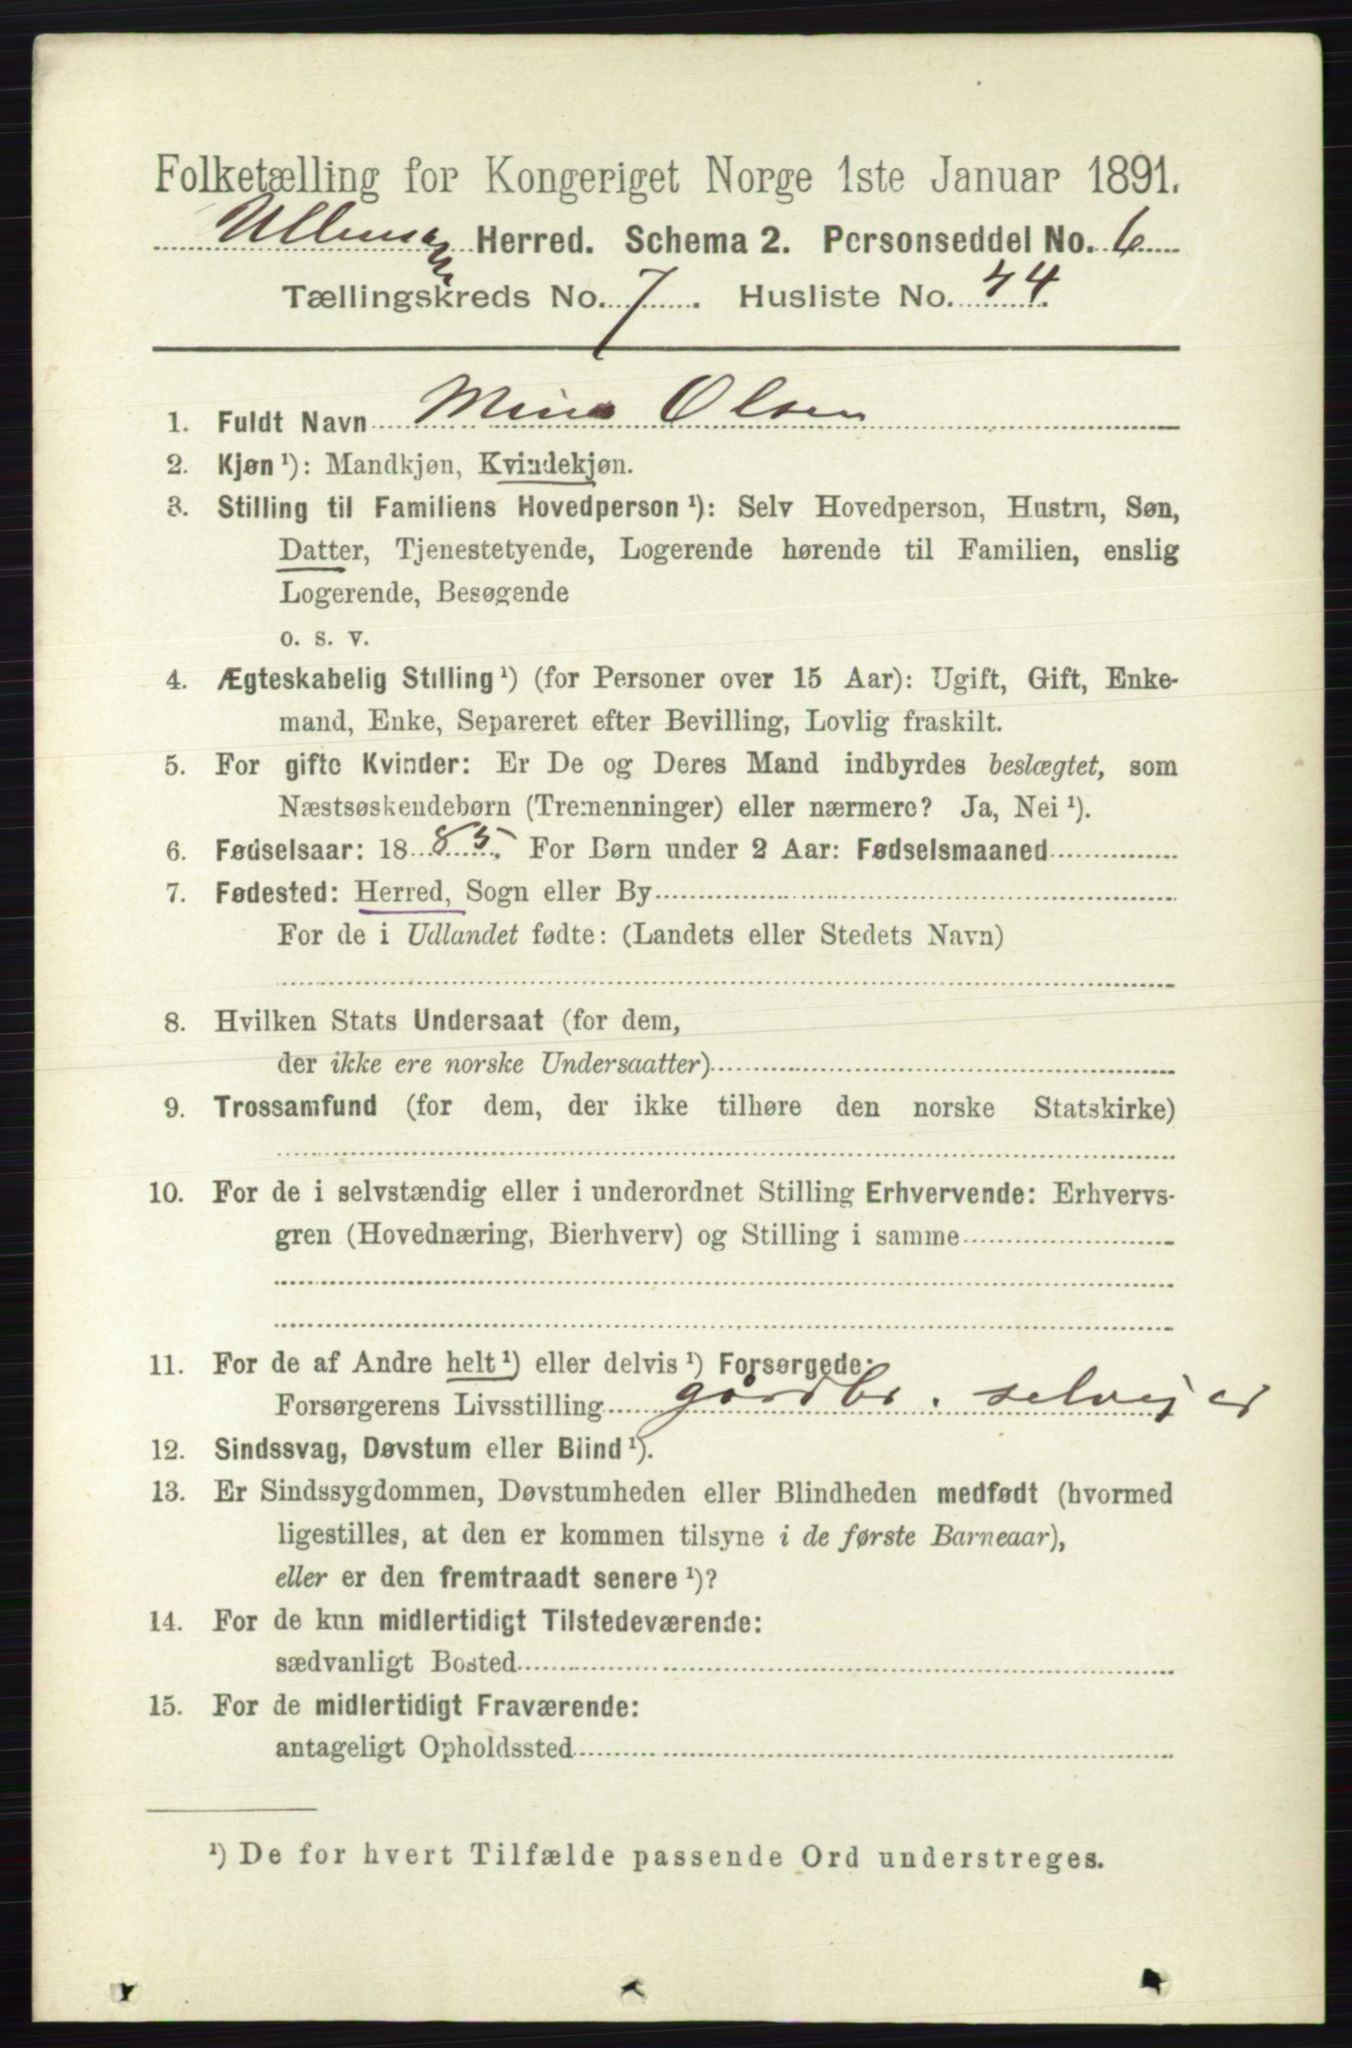 Folketælling for Kongeriget Norge 1ste Januar 1891.
Ullensager Herred. Schema 2. Personseddel No. 6
Tællingskreds No. 7. Husliste No. 44.
1. Fuldt Navn Mina Olsen
2. Kjøn ¹): Mandkjøn, Kvindekjøn.
3. Stilling til Familiens Hovedperson ¹): Selv Hovedperson, Hustru, Søn,
Datter, Tjenestetyende, Logerende hørende til Familien, enslig
Logerende, Besøgende
o. s. v.
4. Ægteskabelig Stilling ¹) (for Personer over 15 Aar): Ugift, Gift, Enke-
mand, Enke, Separeret efter Bevilling, Lovlig fraskilt.
5. For gifte Kvinder: Er De og Deres Mand indbyrdes beslægtet, som
Næstsøskendebørn (Tremenninger) eller nærmere? Ja, Nei ¹).
6. Fødselsaar: 1885. For Børn under 2 Aar: Fødselsmaaned
7. Fødested: Herred, Sogn eller By
For de i Udlandet fødte: (Landets eller Stedets Navn)
8. Hvilken Stats Undersaat (for dem,
der ikke ere norske Undersaatter)
9. Trossamfund (for dem, der ikke tilhøre den norske Statskirke)
10. For de i selvstændig eller i underordnet Stilling Erhvervende: Erhvervs-
gren (Hovednæring, Bierhverv) og Stilling i samme
11. For de af Andre helt ¹) eller delvis ¹) Forsørgede:
Forsørgerens Livsstilling gårdbr. selvejer
12. Sindssvag, Døvstum eller Blind ¹).
13. Er Sindssygdommen, Døvstumheden eller Blindheden medfødt (hvormed
ligestilles, at den er kommen tilsyne i de første Barneaar),
eller er den fremtraadt senere ¹)?
14. For de kun midlertidigt Tilstedeværende:
sædvanligt Bosted
15. For de midlertidigt Fraværende:
antageligt Opholdssted
¹) De for hvert Tilfælde passende Ord understreges.